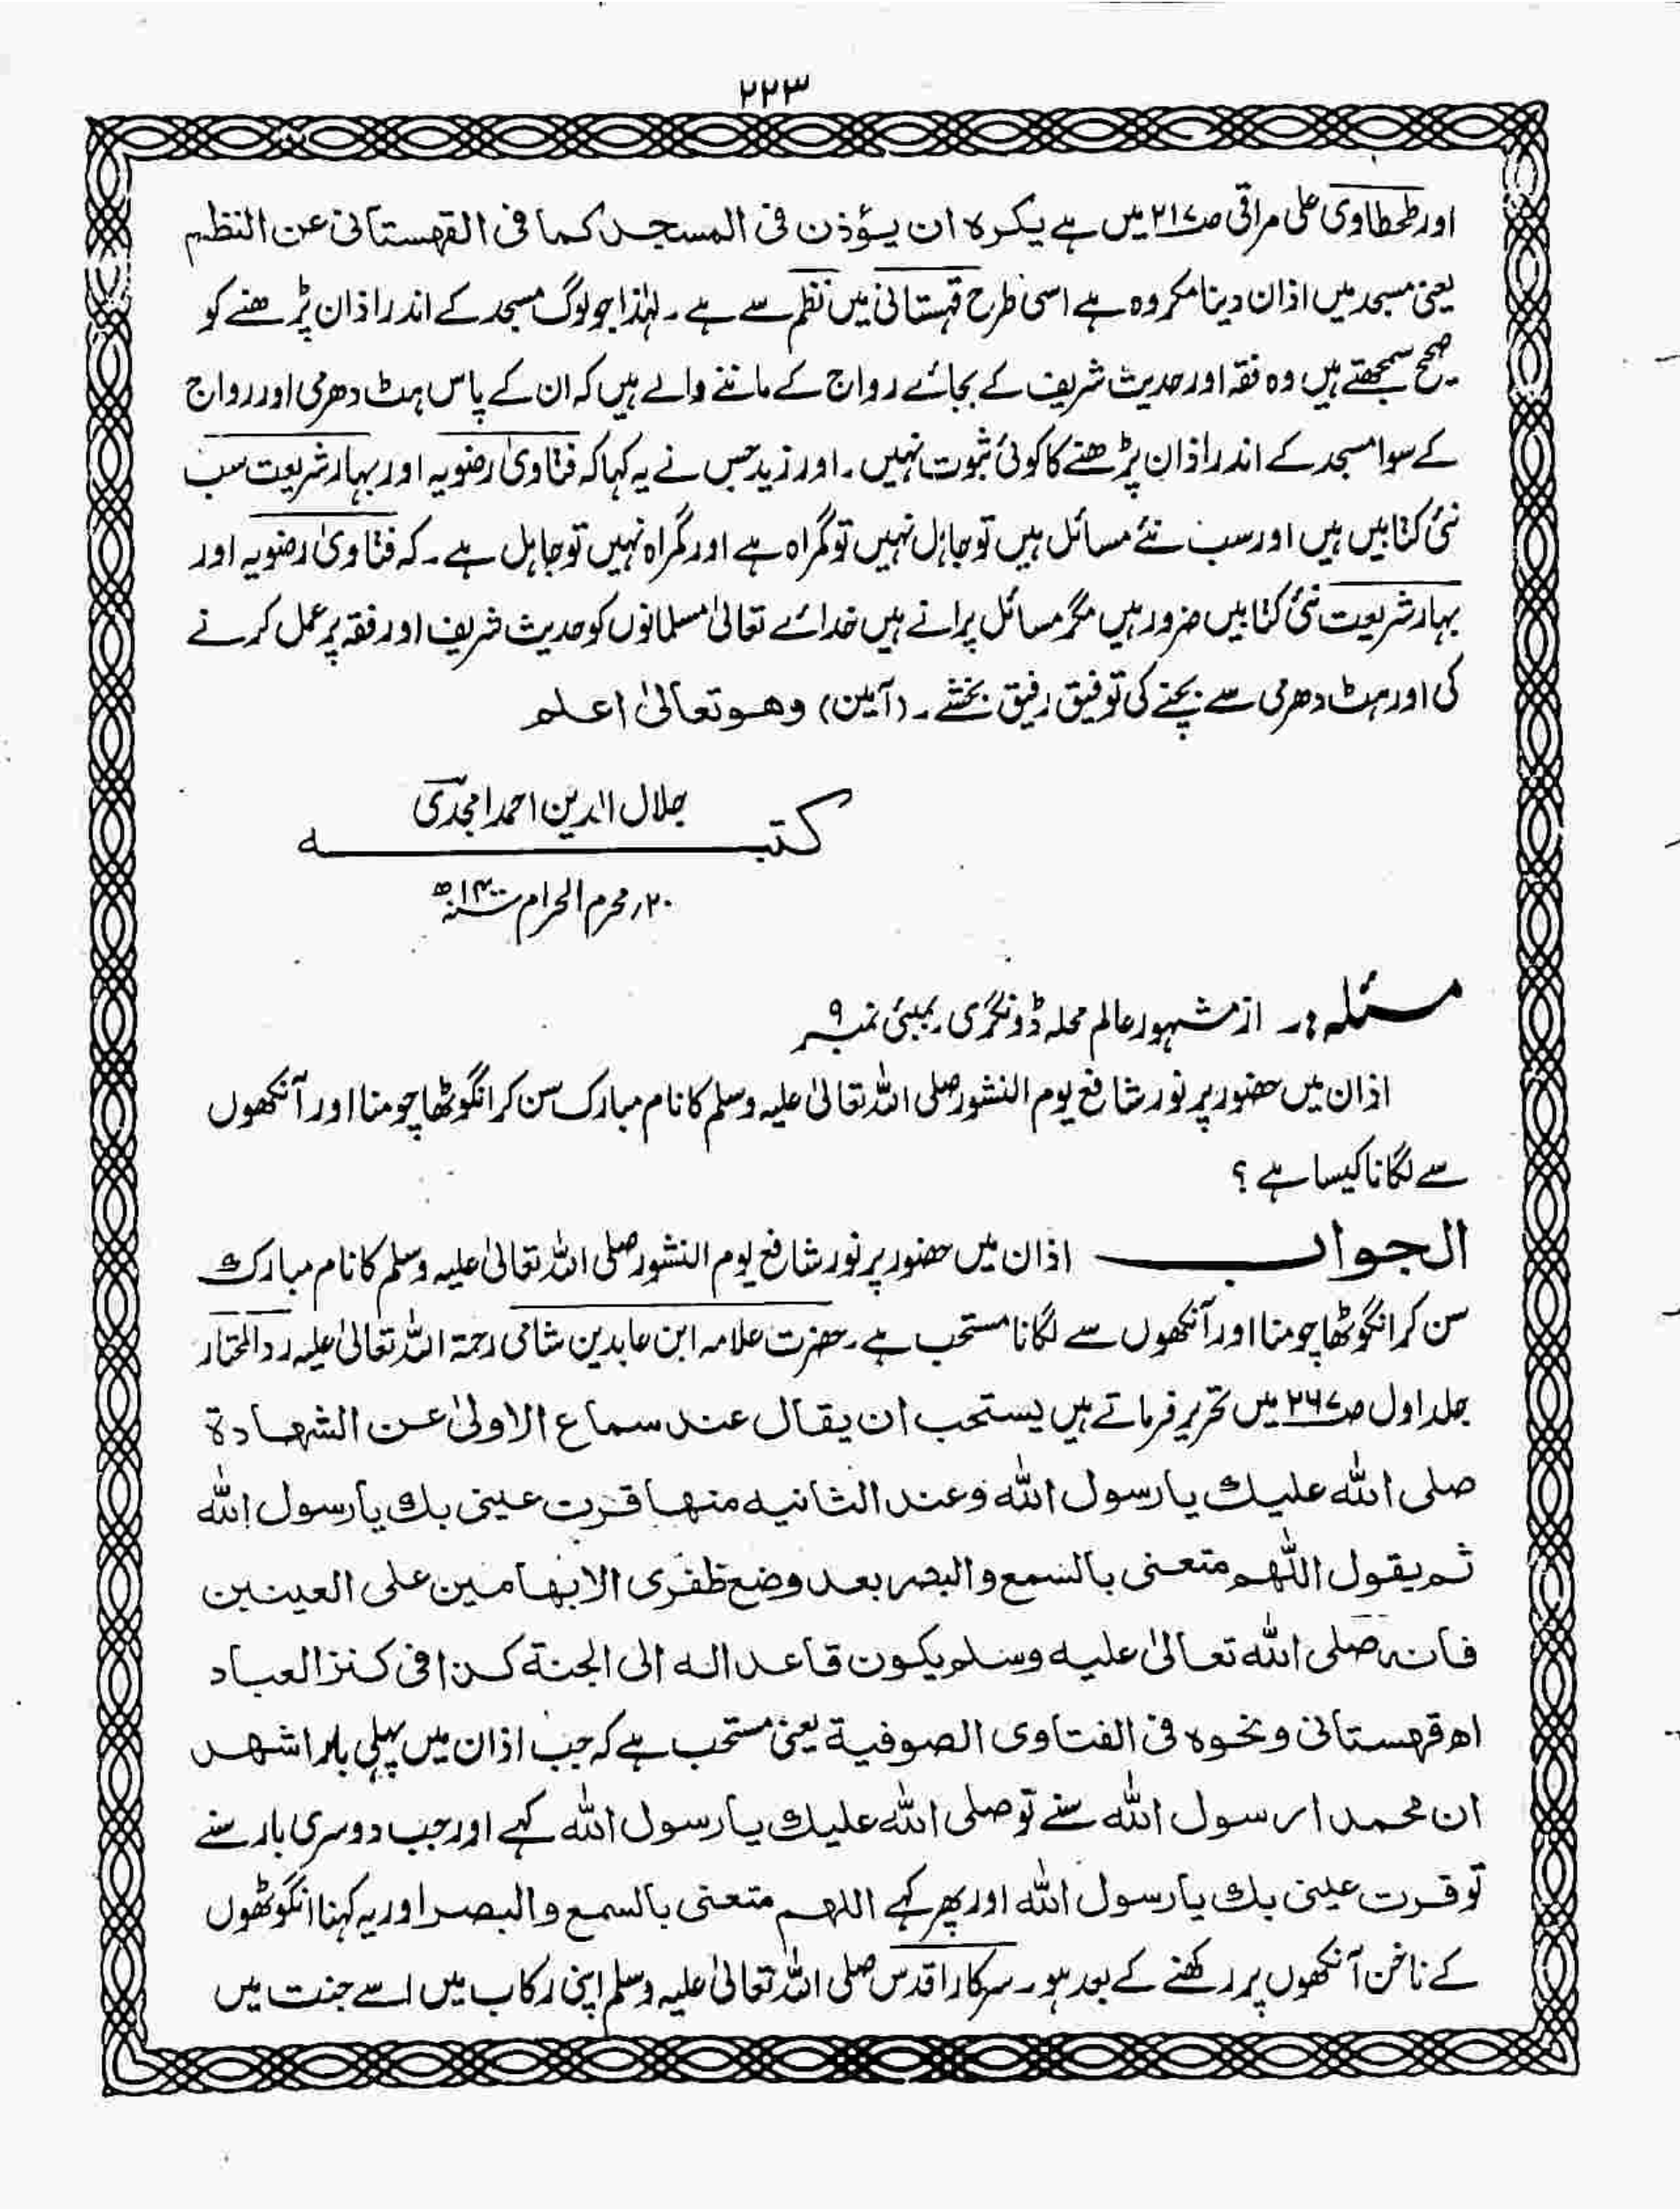 ۲۲۳
اور طحطاوی علی مراقی ص۲۱۷ میں ہے یکرہ ان یؤذن فی المسجد کما فی القهستانی عن النظم
یعنی مسجد میں اذان دینا مکروہ ہے اسی طرح قہستانی میں نظم سے ہے ۔ لہٰذا جو لوگ مسجد کے اندر اذان پڑھنے کو
صحیح سمجھتے ہیں وہ فقہ اور حدیث شریف کے بجائے رواج کے ماننے والے ہیں کہ ان کے پاس ہٹ دھرمی اور رواج
کے سوا مسجد کے اندر اذان پڑھنے کا کوئی ثبوت نہیں ۔ اور زید جس نے یہ کہا کہ فتاویٰ رضویہ اور بہار شریعت سب
نئی کتابیں ہیں اور سب نئے مسائل ہیں تو جاہل نہیں تو گمراہ ہے اور گمراہ نہیں تو جاہل ہے ۔ کہ فتاویٰ رضویہ اور
بہار شریعت نئی کتابیں ضرور ہیں مگر مسائل پرانے ہیں خدائے تعالیٰ مسلمانوں کو حدیث شریف اور فقہ پر عمل کرنے
کی اور ہٹ دھرمی سے بچنے کی توفیق رفیق بخشے ۔ (آمین) وھو تعالیٰ اعلم
جلال الدین احمد امجدی
کتبہ
۲۰؍ محرم الحرام سنہ ۱۴۰۰ھ
مسئلہ :۔ از مشہور عالم محلہ ڈونگری بمبئی نمبر ۹
اذان میں حضور پر نور شافع یوم النشور صلی اللہ تعالیٰ علیہ وسلم کا نام مبارک سن کر انگوٹھا چومنا اور آنکھوں
سے لگانا کیسا ہے ؟
الجواب ــــــ اذان میں حضور پر نور شافع یوم النشور صلی اللہ تعالیٰ علیہ وسلم کا نام مبارک
سن کر انگوٹھا چومنا اور آنکھوں سے لگانا مستحب ہے ۔ حضرت علامہ ابن عابدین شامی رحمۃ اللہ تعالیٰ علیہ ردالمحتار
جلد اول ص۲۶۷ میں تحریر فرماتے ہیں یستحب ان یقال عند سماع الاولیٰ عن الشهادة
صلی اللہ علیك یا رسول اللہ وعند الثانیه منها قرت عینی بك یا رسول اللہ
ثم یقول اللّٰهم متعنی بالسمع والبصر بعد وضع ظفری الابهامین علی العینین
فانہ صلی اللہ تعالیٰ علیه وسلم یکون قاعد اله الی الجنة کذا فی کنز العباد
اھ قهستانی ونحوہ فی الفتاوی الصوفیة یعنی مستحب ہے کہ جب اذان میں پہلی بار اشهد
ان محمدا رسول اللہ سنے تو صلی اللہ علیك یا رسول اللہ کہے اور جب دوسری بار سنے
تو قرت عینی بك یا رسول اللہ اور پھر کہے اللهم متعنی بالسمع والبصر اور یہ کہنا انگوٹھوں
کے ناخن آنکھوں پر رکھنے کے بعد ہو ۔ سرکار اقدس صلی اللہ تعالیٰ علیہ وسلم اپنی رکاب میں اسے جنت میں